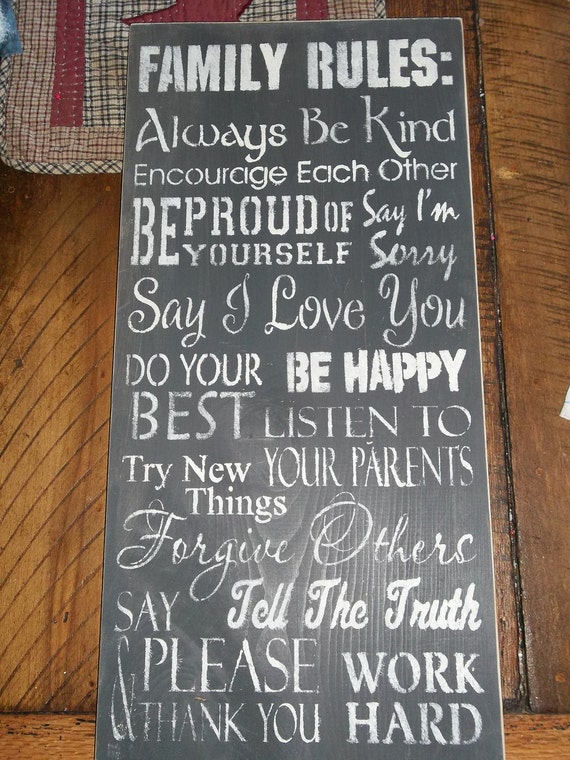 FAMILY RULES:
Always Be Kind
Encourage Each Other
BE PROUD OF
YOURSELF
Say I'm
Sorry
Say I Love You
DO YOUR
BEST
BE HAPPY
LISTEN TO
YOUR PARENTS
Try New
Things
Forgive Others
SAY
PLEASE
& THANK YOU
Tell The Truth
WORK
HARD